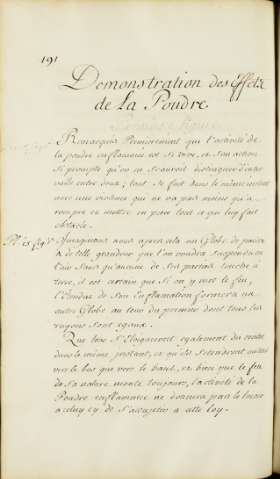 191
Demonstration des Effets
de la Poudre
Remarqués Premierement que l'activité de
la poudre enflammée est si vive, et son action
si prompte qu'on ne scauroit distinguer d'inter
valle entre deux; tout se fait dans le même instant
avec une violence qui ne va pas moins qu'a
rompre et mettre en piece tout ce qui luy fait
obstacle.
Imaginons nous apres cela un Globe de poudre
de telle grandeur que l'on voudra suspendu en
l'air sans qu'aucune de ses parties touche à
terre, il est certain que si on y met le feu,
l'Etendue de son Enflamation formera un
autre Globe au tour du premier dont tous les
rayons sont egaux.
Que bien s'Eloigneront egalement du centre
dans le même instant, et qu'ils s'etendront autant
vers le bas que vers le haut, et bien que le feu
de sa nature monte toujours, l'activité de la
Poudre enflammée ne donnera pas le loisir
a celuy cy de s'assujetir a cette loy.